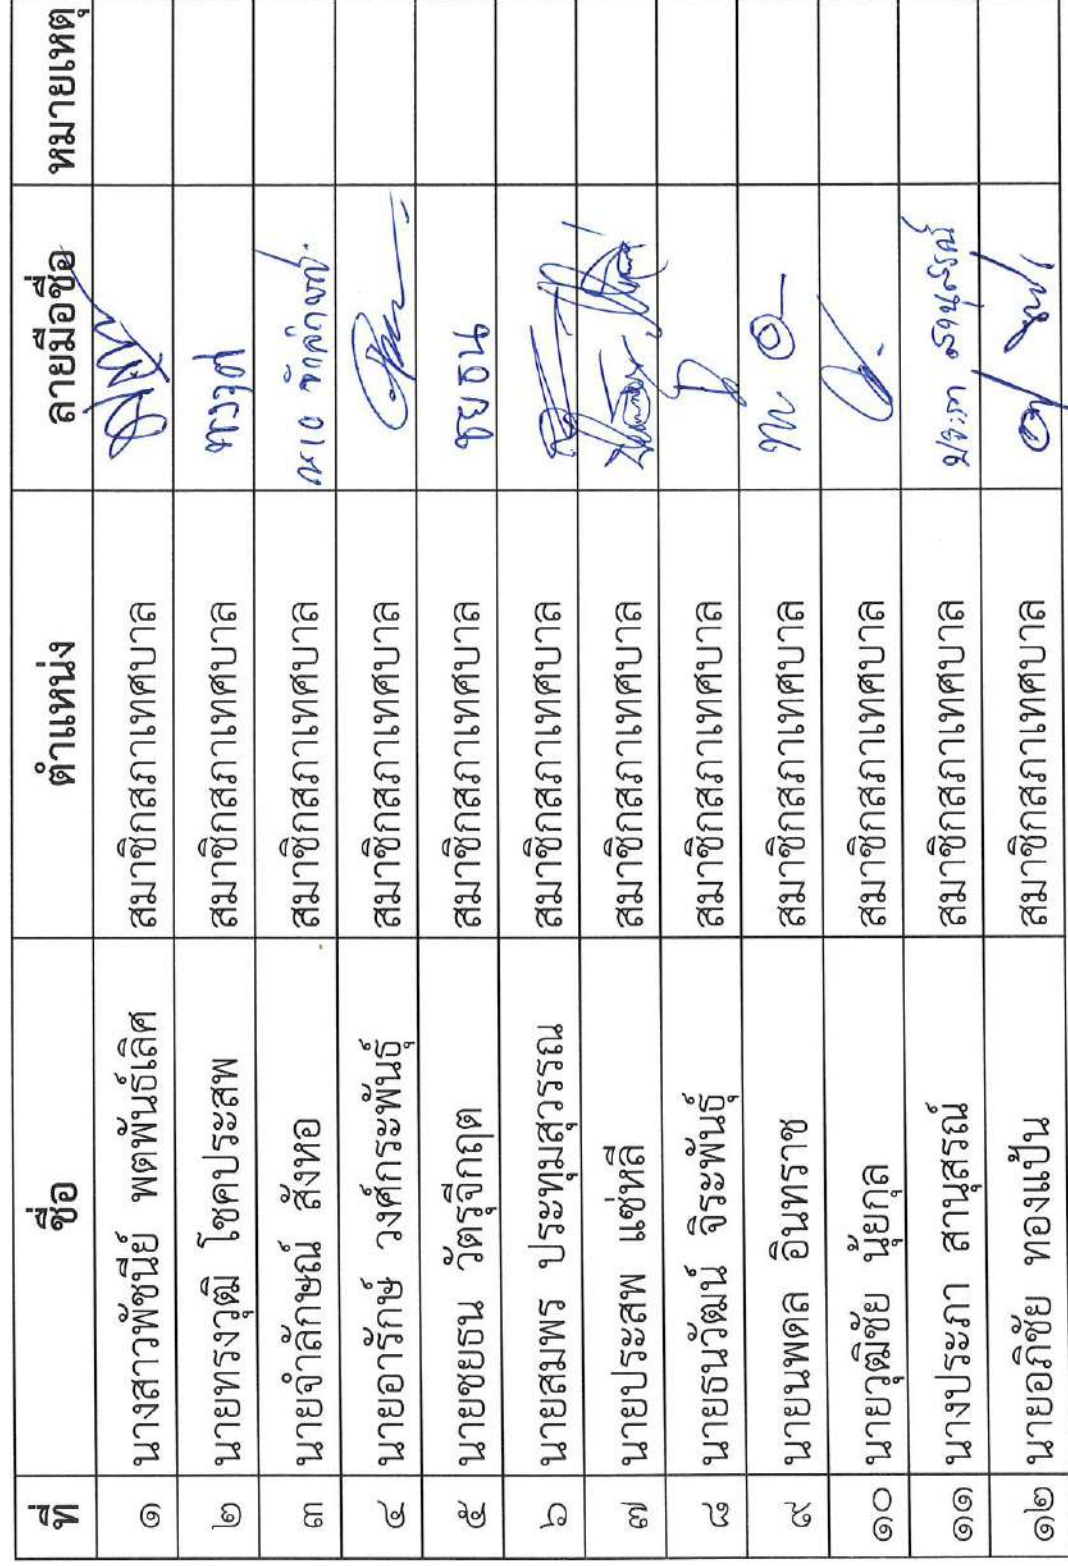 ที่ ชื่อ ตำแหน่ง ลายมือชื่อ หมายเหตุ
๑ นางสาวพัชนีย์ พตพันธ์เลิศ สมาชิกสภาเทศบาล
๒ นายทรงวุฒิ โชคประสพ สมาชิกสภาเทศบาล
๓ นายจำลักษณ์ สังหอ สมาชิกสภาเทศบาล
๔ นายอารักษ์ วงศ์กระพันธุ์ สมาชิกสภาเทศบาล
๕ นายชยธน วัตรุจีกฤต สมาชิกสภาเทศบาล ชยธน
๖ นายสมพร ประทุมสุวรรณ สมาชิกสภาเทศบาล
๗ นายประสพ แซ่หลี สมาชิกสภาเทศบาล
๘ นายธนวัฒน์ จิระพันธุ์ สมาชิกสภาเทศบาล
๙ นายนพดล อินทราช สมาชิกสภาเทศบาล
๑๐ นายวุฒิชัย นุ้ยกุล สมาชิกสภาเทศบาล
๑๑ นางประภา สานุสรณ์ สมาชิกสภาเทศบาล ประภา สานุสรณ์
๑๒ นายอภิชัย ทองแป้น สมาชิกสภาเทศบาล